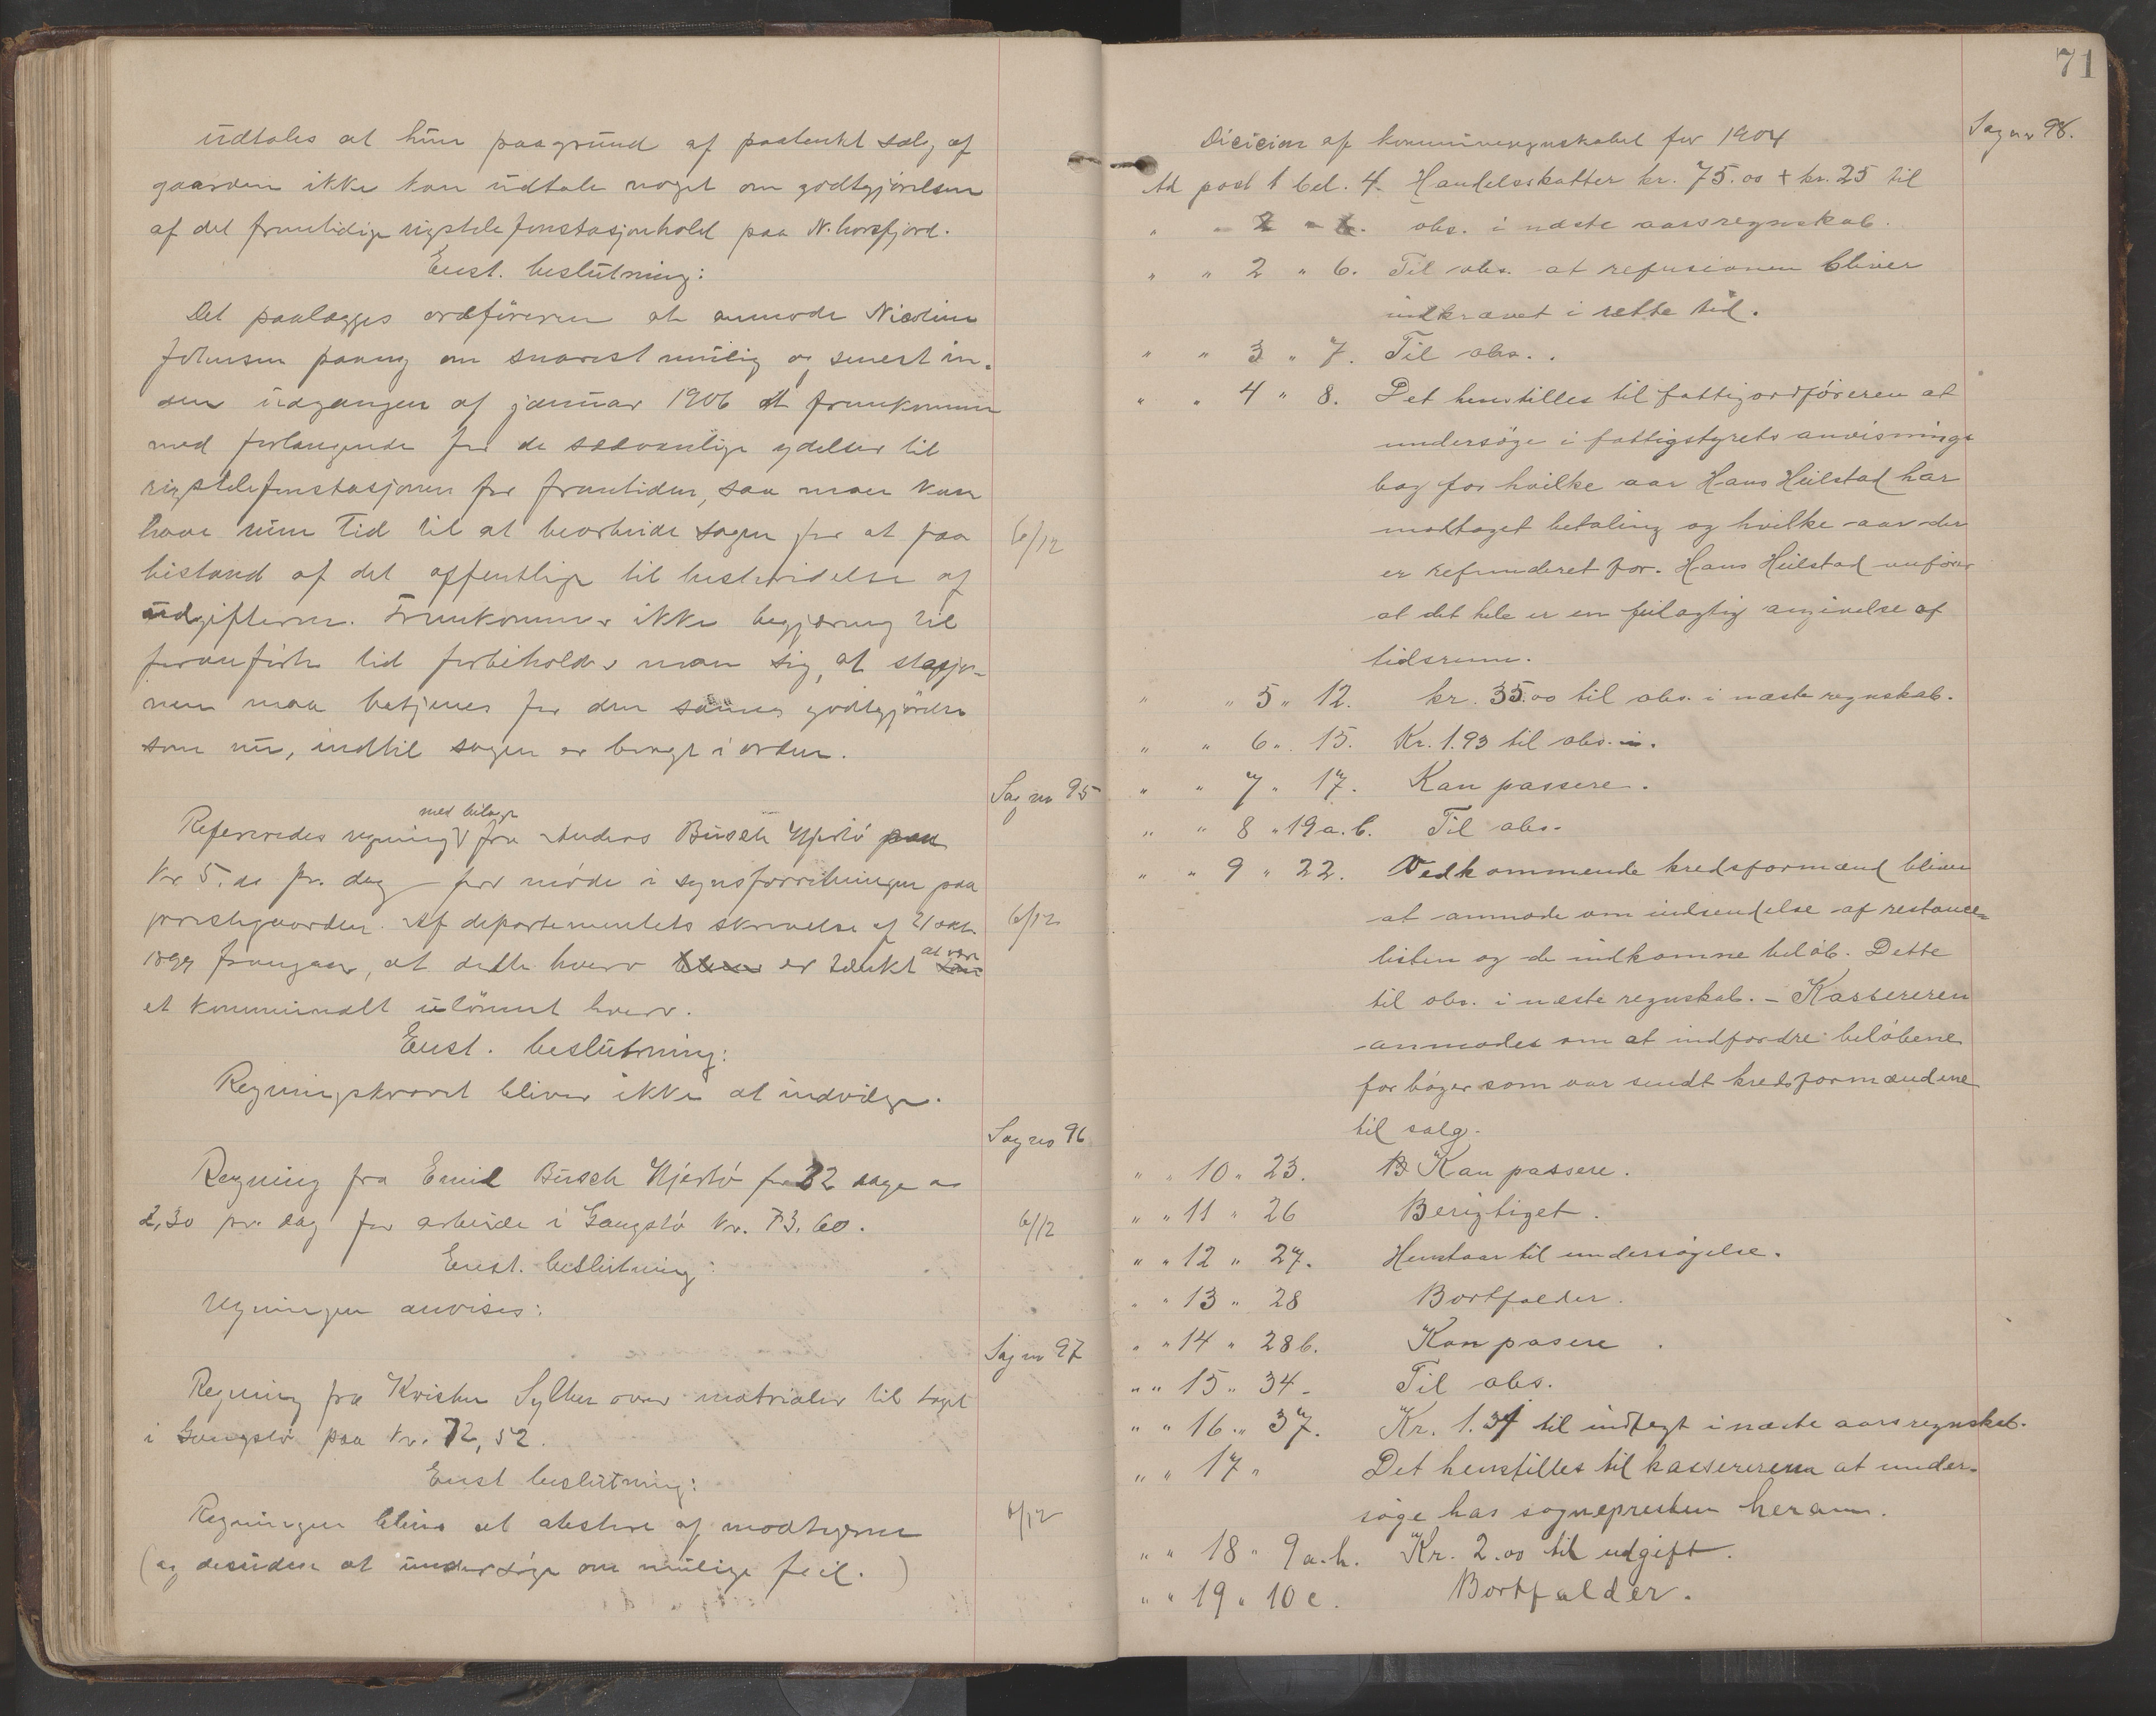 udtales at hun paagrund af paatænkt salg af
gaarden ikke kan udtale noget om godtgjörelsen
af det fremtidige rigstelefonstasjonhold paa N. horsfjord.
Enst. beslutning:
Det paalægges ordföreren at anmode Nicoline
Johnsen paany om snarest mulig og senest in-
den udgangen af januar 1906 at fremkomme
med forlangende for de sedvanlige ydelser til
rigstelefonstasjonen for fremtiden, saa man kan
have num Tid til at bearbeide sagen for at faa
bistand af det offentlige til bestridelse af
udgifterne. Fremkommer ikke begjæring til
foranførte tid forbeholder man sig, at stasjo-
nen maa betjenes for den samme godtgjörelse
som nu, indtil sagen er bragt i orden.
6/12
Sag no 95
Refereredes regning med bilage fra Anders Busch Hjertö paa
Kr 5.00 pr. dag for möde i synsforretningen paa
prestegaarden. Af departementets skrivelse af 21 okt.
1899 fremgaar, at dette hverv er tænkt at være
et kommunalt ulönnet hverv.
6/12
Enst. beslutning:
Regningskravet bliver ikke at indvilge.
Sag no 96
Regning fra Emil Busch Hjertö for 32 dage a
2,30 pr. dag for arbeide i Gangstö kr. 73.60.
6/12
Enst. beslutning:
Regningen anvises:
Sag no 97
Regning fra Kristen Sylten over matrialer til taget
i Gangstö paa kr. 72,52.
Enst beslutning:
Regningen bliver at atestere af modtageren
(og desuden at undersöge om mulige feil.)
6/12
71
Sag nr 98.
Dicision af kommuneregnskabet for 1904
Ad post 1 bel. 4. Handelsskatter kr. 75.00 + kr. 25 til
obs. i næste aarsregnskab.
" " 2 " 6. Til obs. at refusionen bliver
indkrævet i rette tid.
" " 3 " 7. Til obs..
" " 4 " 8. Det henstilles til fattigordföreren at
undersöge i fattigstyrets anvisnings
bog for hvilke aar Hans Heilstad har
modtaget betaling og hvilke aar der
er refunderet for. Hans Heilstad anförer
at det hele er en feilagtig angivelse af
tidsrum.
" " 5 " 12. kr. 35.00 til obs. i næste regnskab.
" " 6 " 15. Kr. 1.93 til obs.
" " 7 " 17. Kan passere.
" " 8 " 19 a.b. Til obs.
" " 9 " 22. Vedkommende kredsformænd bliver
at anmode om indsendelse af restance
listen og de indkomne belöb. Dette
til obs. i næste regnskab. – Kassereren
anmodes om at indfordre belöbene
for böger som var sendt kredsformændene
til salg.
" " 10 " 23. Kan passere.
" " 11 " 26 Berigtiget.
" " 12 " 27. Henstaar til undersögelse.
" " 13 " 28 Bortfalder.
" " 14 " 28 b. Kan pasere.
" " 15 " 34 – Til obs.
" " 16 " 37. Kr. 1.34 til indtegt i næste aarsregnskab.
" " 17 " Det henstilles til kassereren at under-
söge hos sognepresten herom.
" " 18 " 9 a.h. Kr. 2.00 til udgift.
" " 19 " 10 c. Bortfalder.